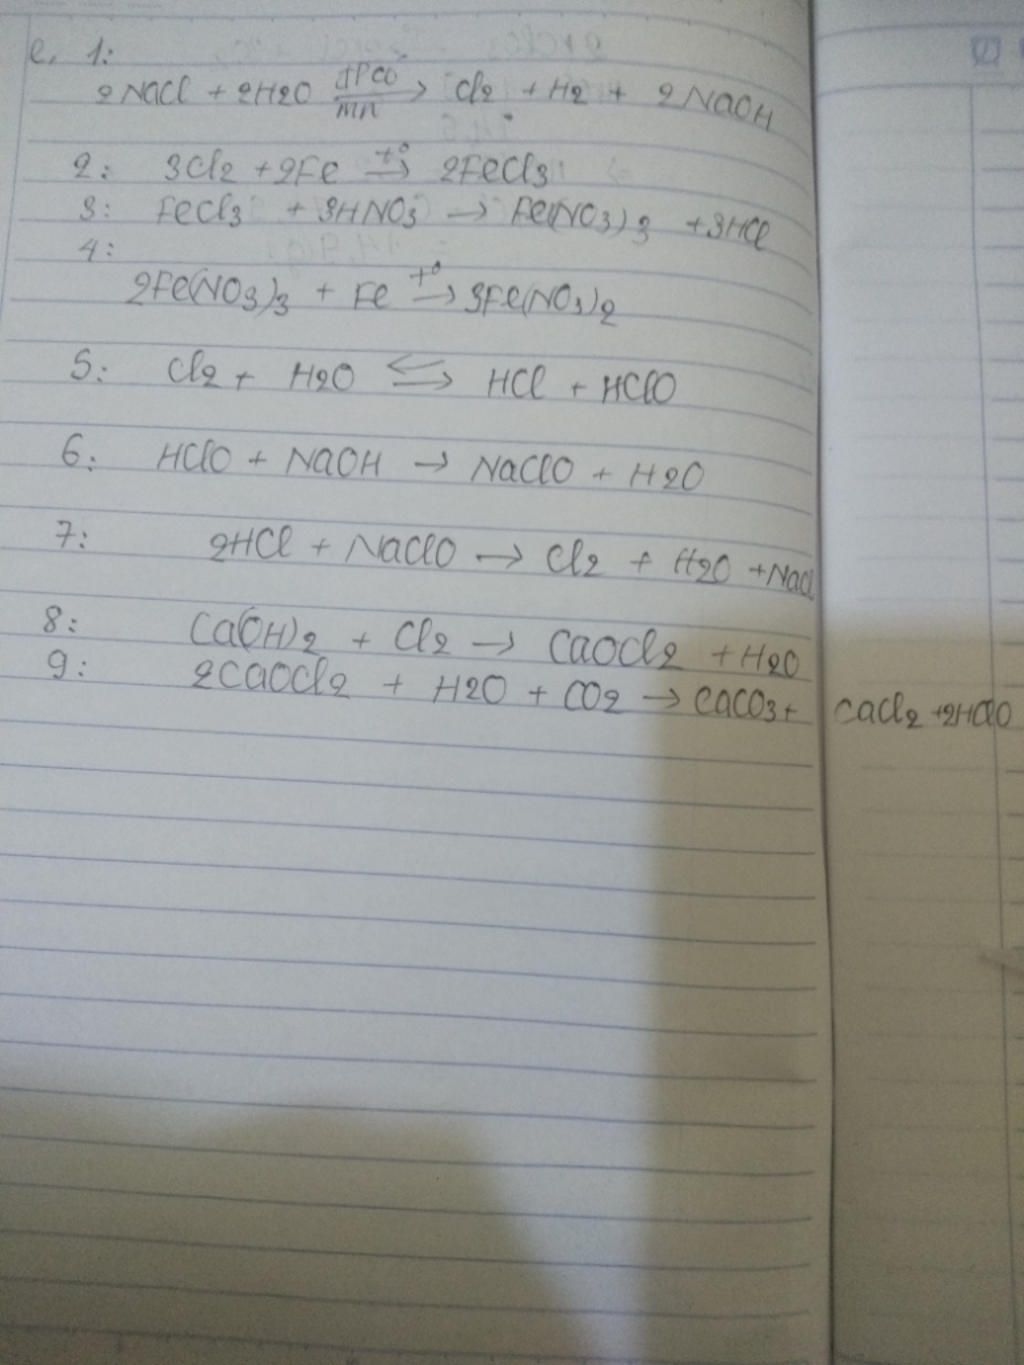 e, 1:
2NaCl + 2H2O đpcó/mn → Cl2 + H2 + 2NaOH
2: 3Cl2 + 2Fe t° → 2FeCl3
3: FeCl3 + 3HNO3 → Fe(NO3)3 + 3HCl
4:
2Fe(NO3)3 + Fe t° → 3Fe(NO3)2
5: Cl2 + H2O ⇌ HCl + HClO
6: HClO + NaOH → NaClO + H2O
7: 2HCl + NaClO → Cl2 + H2O + NaCl
8: Ca(OH)2 + Cl2 → CaOCl2 + H2O
9: 2CaOCl2 + H2O + CO2 → CaCO3 + CaCl2 + 2HClO